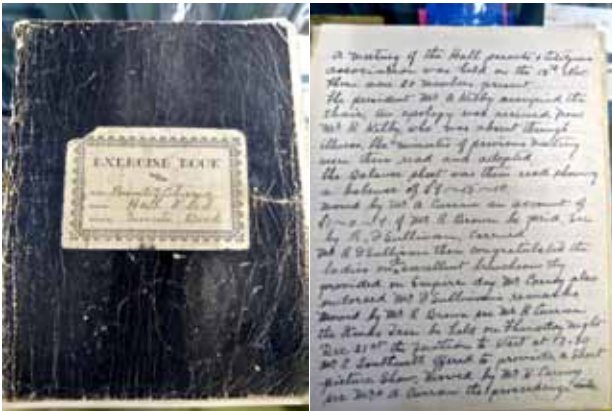 EXERCISE BOOK
Parents & Citizens
Hall School
Minute Book
A meeting of the Hall parents & citizens
association was held on the 13th
there were 20 members present
The president Mr A Kilby occupied the
chair, an apology was received from
Mr R Kilby who was absent through
illness, the minutes of previous meeting
were then read and adopted
the Balance sheet was then read showing
a balance of
moved by Mr A Curran an account of
Mr R Brown be paid, sec
by R. O'Sullivan, carried
Mr R O'Sullivan then congratulated the
ladies on the excellent luncheon they
provided on Empire day Mr also
endorsed Mr O'Sullivan's remarks
moved by Mr R Brown sec Mr A Curran
the Xmas Tree be held on Thursday night
Dec 21st the function to start at
Mr C Southwell offered to provide a short
picture Show, Moved by Mr
sec Mr A Curran the proceedings